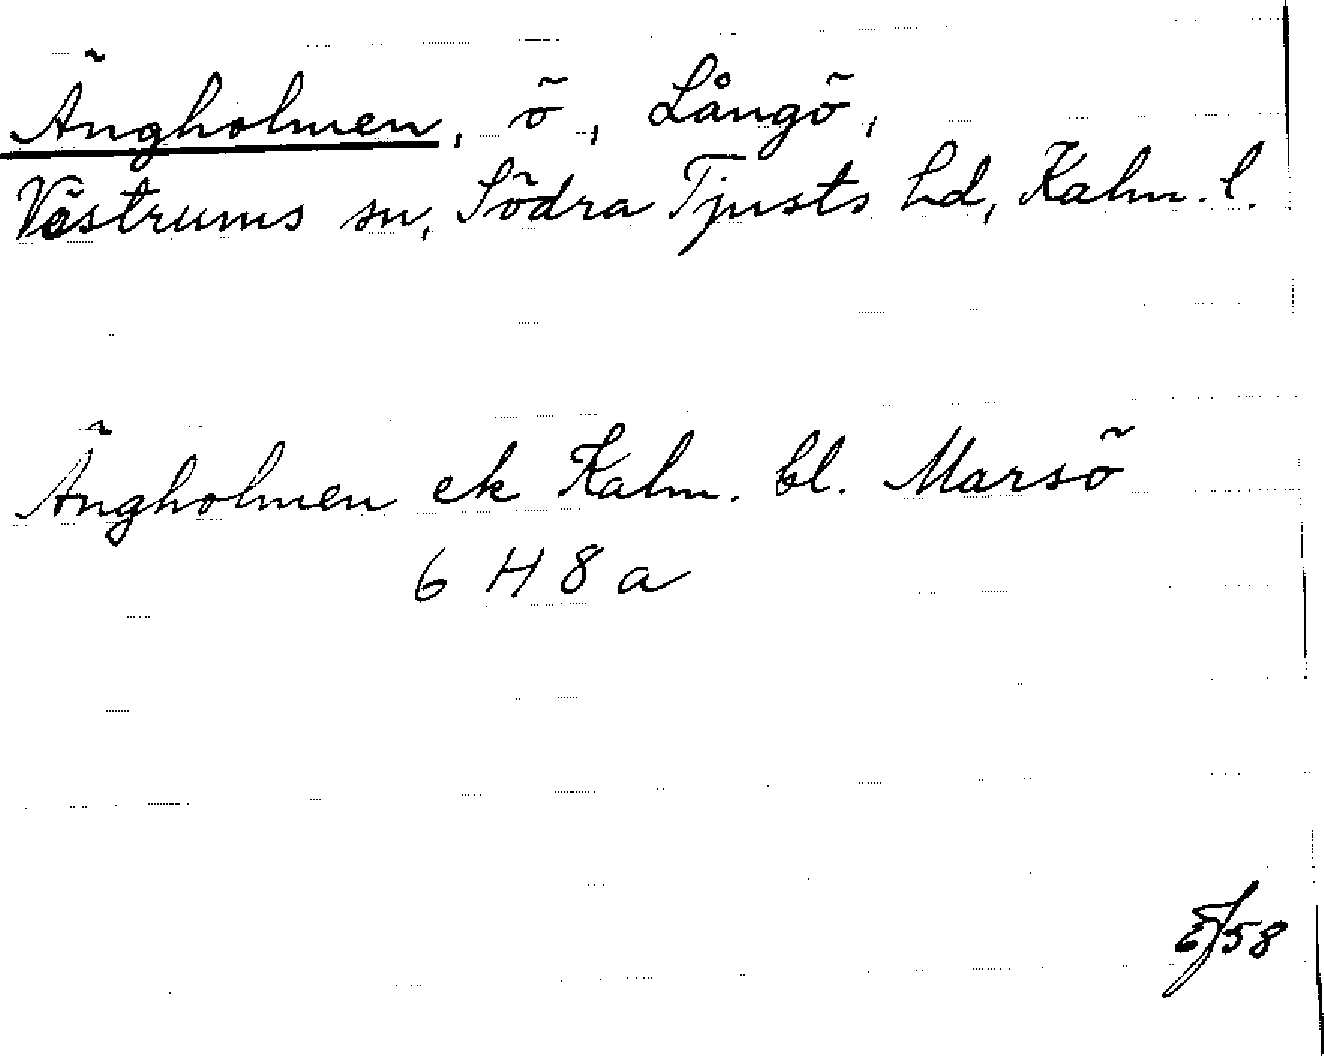 Ängholmen, ö, Långö,
Västrums sn, Södra Tjusts hd, Kalm. l.
Ängholmen ek Kalm. bl. Marsö
6 H 8 a